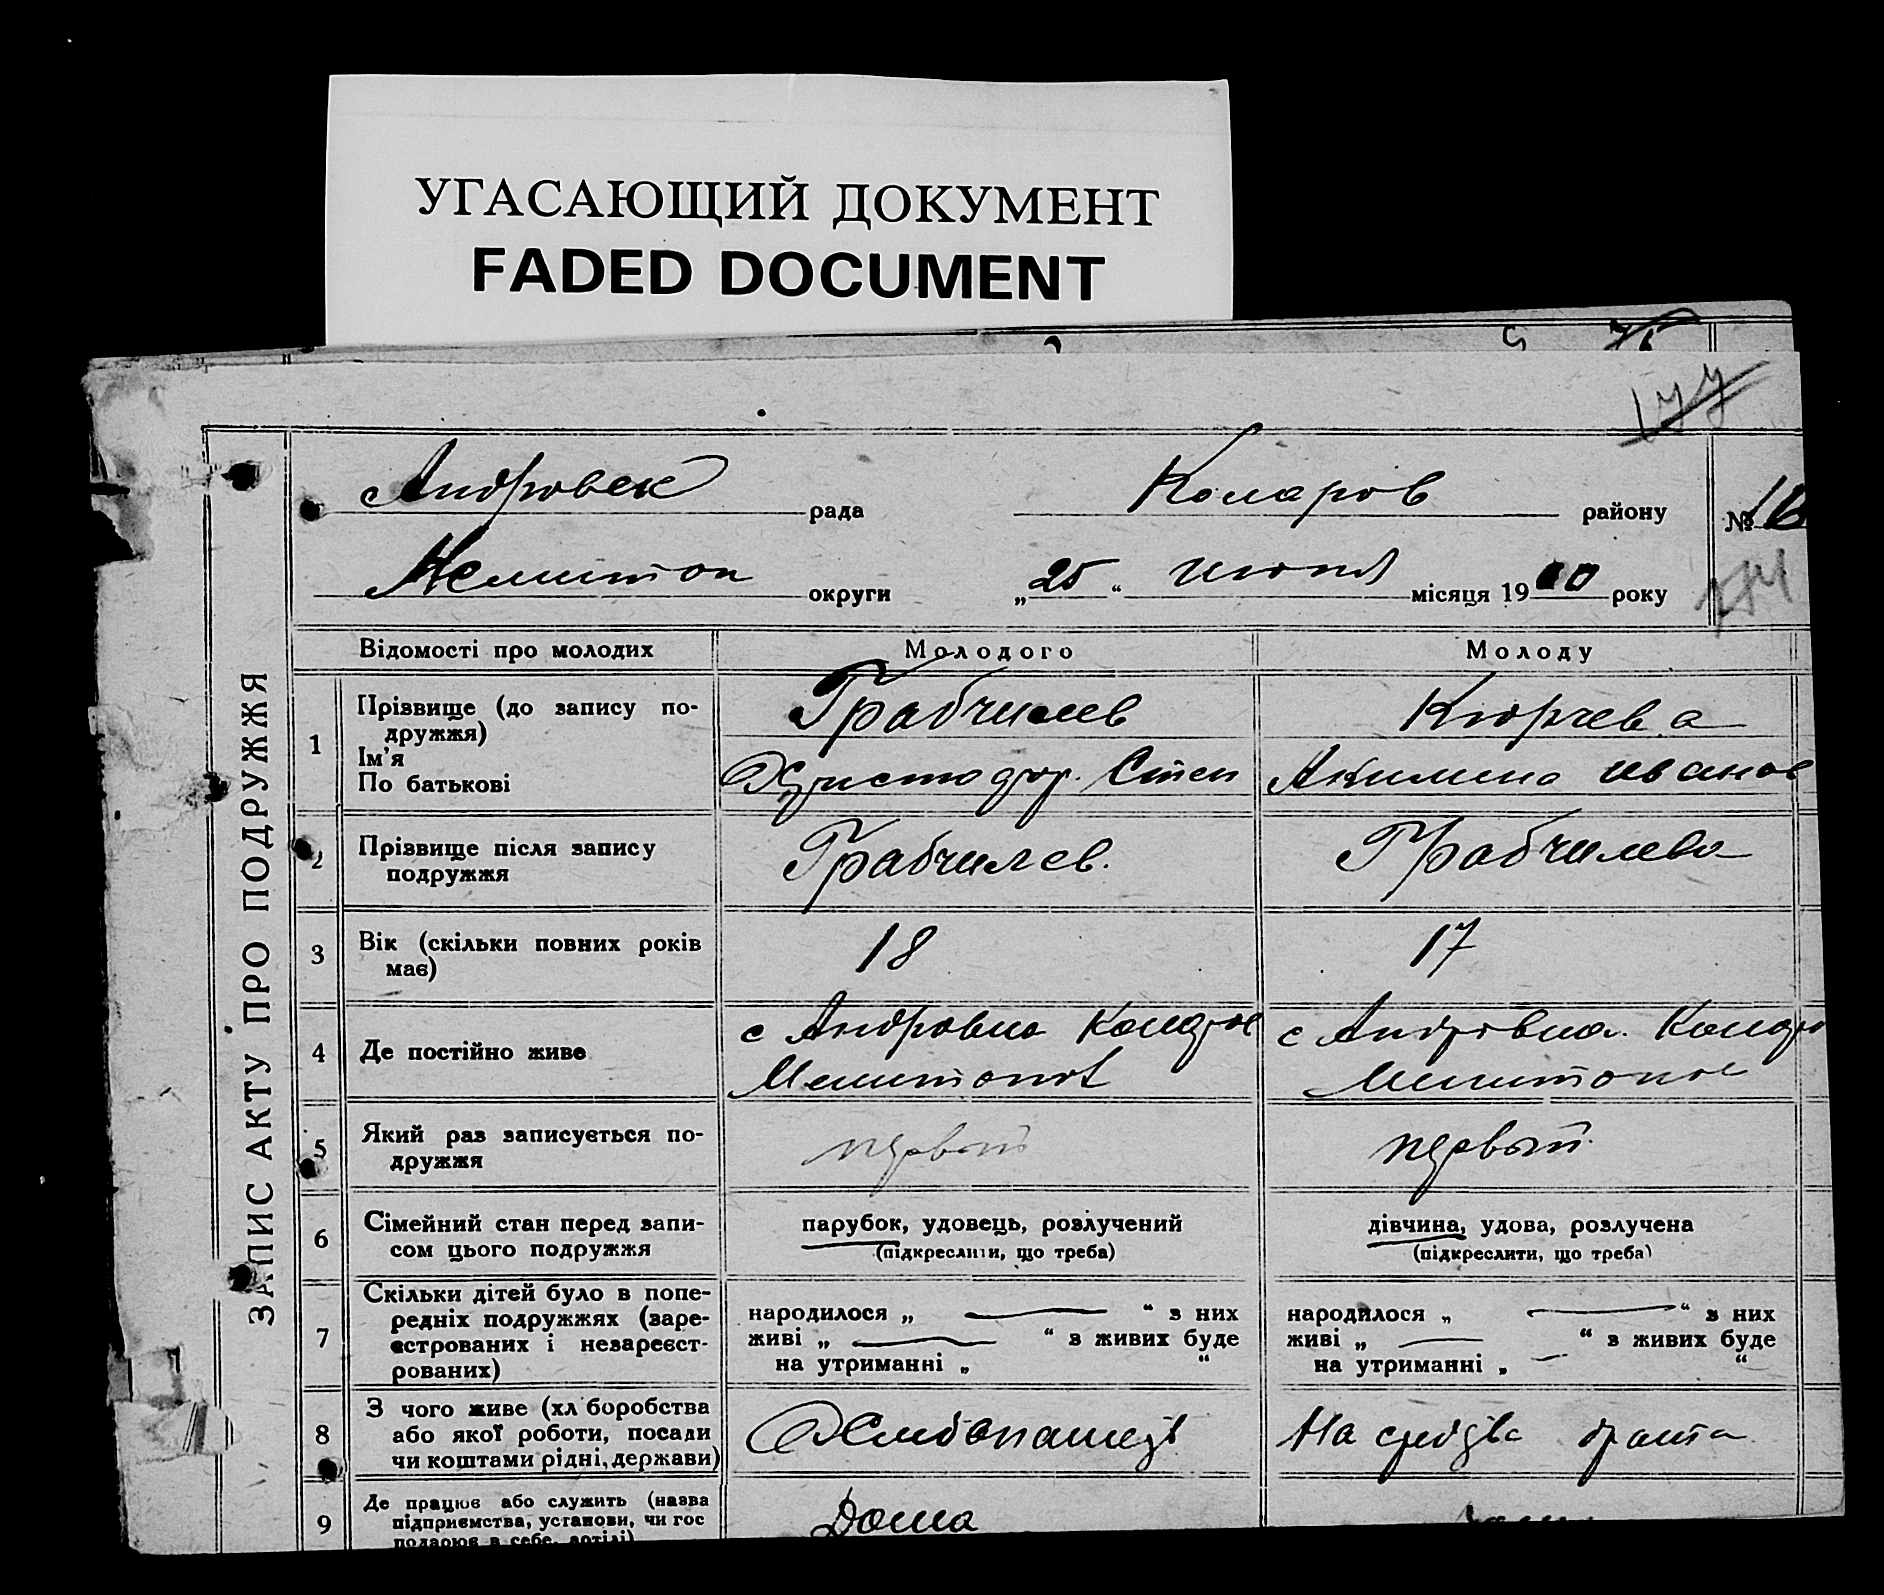 УГАСАЮЩИЙ ДОКУМЕНТ
FADED DOCUMENT
177
Андровск рада Коларов району № 16
Мелитоп округи „25“ июня місяця 19 року
174
ЗАПИС АКТУ ПРО ПОДРУЖЖЯ
Відомості про молодих Молодого Молоду
1 Прізвище (до запису по-
дружжя)
Ім'я
По батькові
Грабчилев
Христофор. Степ
Кюрчева
Акилина Иванов
2 Прізвище після запису
подружжя
Грабчилев.
Грабчилева
3 Вік (скільки повних років
має)
18
17
4 Де постійно живе
с Андровка
Мелитопол
с Андровка.
Мелитопол
5 Який раз записується по-
дружжя
первый
первый
6 Сімейний стан перед запи-
сом цього подружжя
парубок, удовець, розлучений
(підкреслити, що треба)
дівчина, удова, розлучена
(підкреслити, що треба)
7 Скільки дітей було в попе-
редніх подружжях (заре-
єстрованих і незареєст-
рованих)
народилося „ — “ з них
живі „ — “ з живих буде
на утриманні „ “
народилося „ — “ з них
живі „ — “ з живих буде
на утриманні „ — “
8 З чого живе (хліборобства
або якої роботи, посади
чи коштами рідні, держави)
Хлебопашец
На средства брата
9 Де працює або служить (назва
підприємства, установи, чи гос
подарює в себе, артілі)
Дома